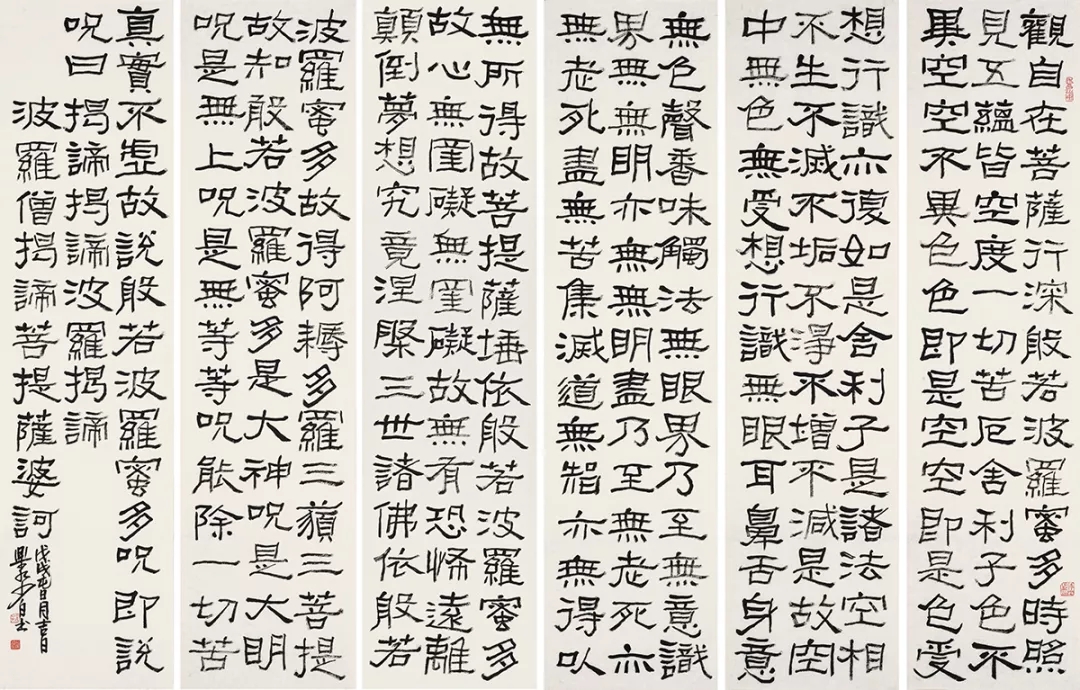 觀自在菩薩行深般若波羅蜜多時照
見五蘊皆空度一切苦厄舍利子色不
異空空不異色色即是空空即是色受
想行識亦復如是舍利子是諸法空相
不生不滅不垢不淨不增不減是故空
中無色無受想行識無眼耳鼻舌身意
無色聲香味觸法無眼界乃至無意識
界無無明亦無無明盡乃至無老死亦
無老死盡無苦集滅道無智亦無得以
無所得故菩提薩埵依般若波羅蜜多
故心無罣礙無罣礙故無有恐怖遠離
顛倒夢想究竟涅槃三世諸佛依般若
波羅蜜多故得阿耨多羅三藐三菩提
故知般若波羅蜜多是大神呪是大明
呪是無上呪是無等等呪能除一切苦
真實不虛故說般若波羅蜜多呪即說
呪曰 揭諦揭諦波羅揭諦
波羅僧揭諦菩提薩婆訶
戊戌 月吉日